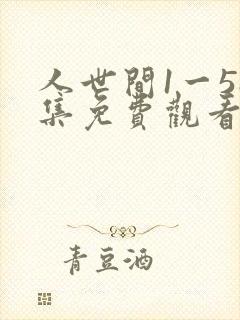 人世間1一5
集免費觀看
青豆酒